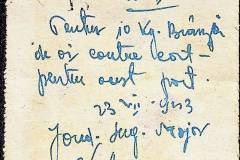 Pentru 10 Kg. Brânză
de oi contra cost-
pentru acest post.
23 VII 1943
Jand. Sug. Major